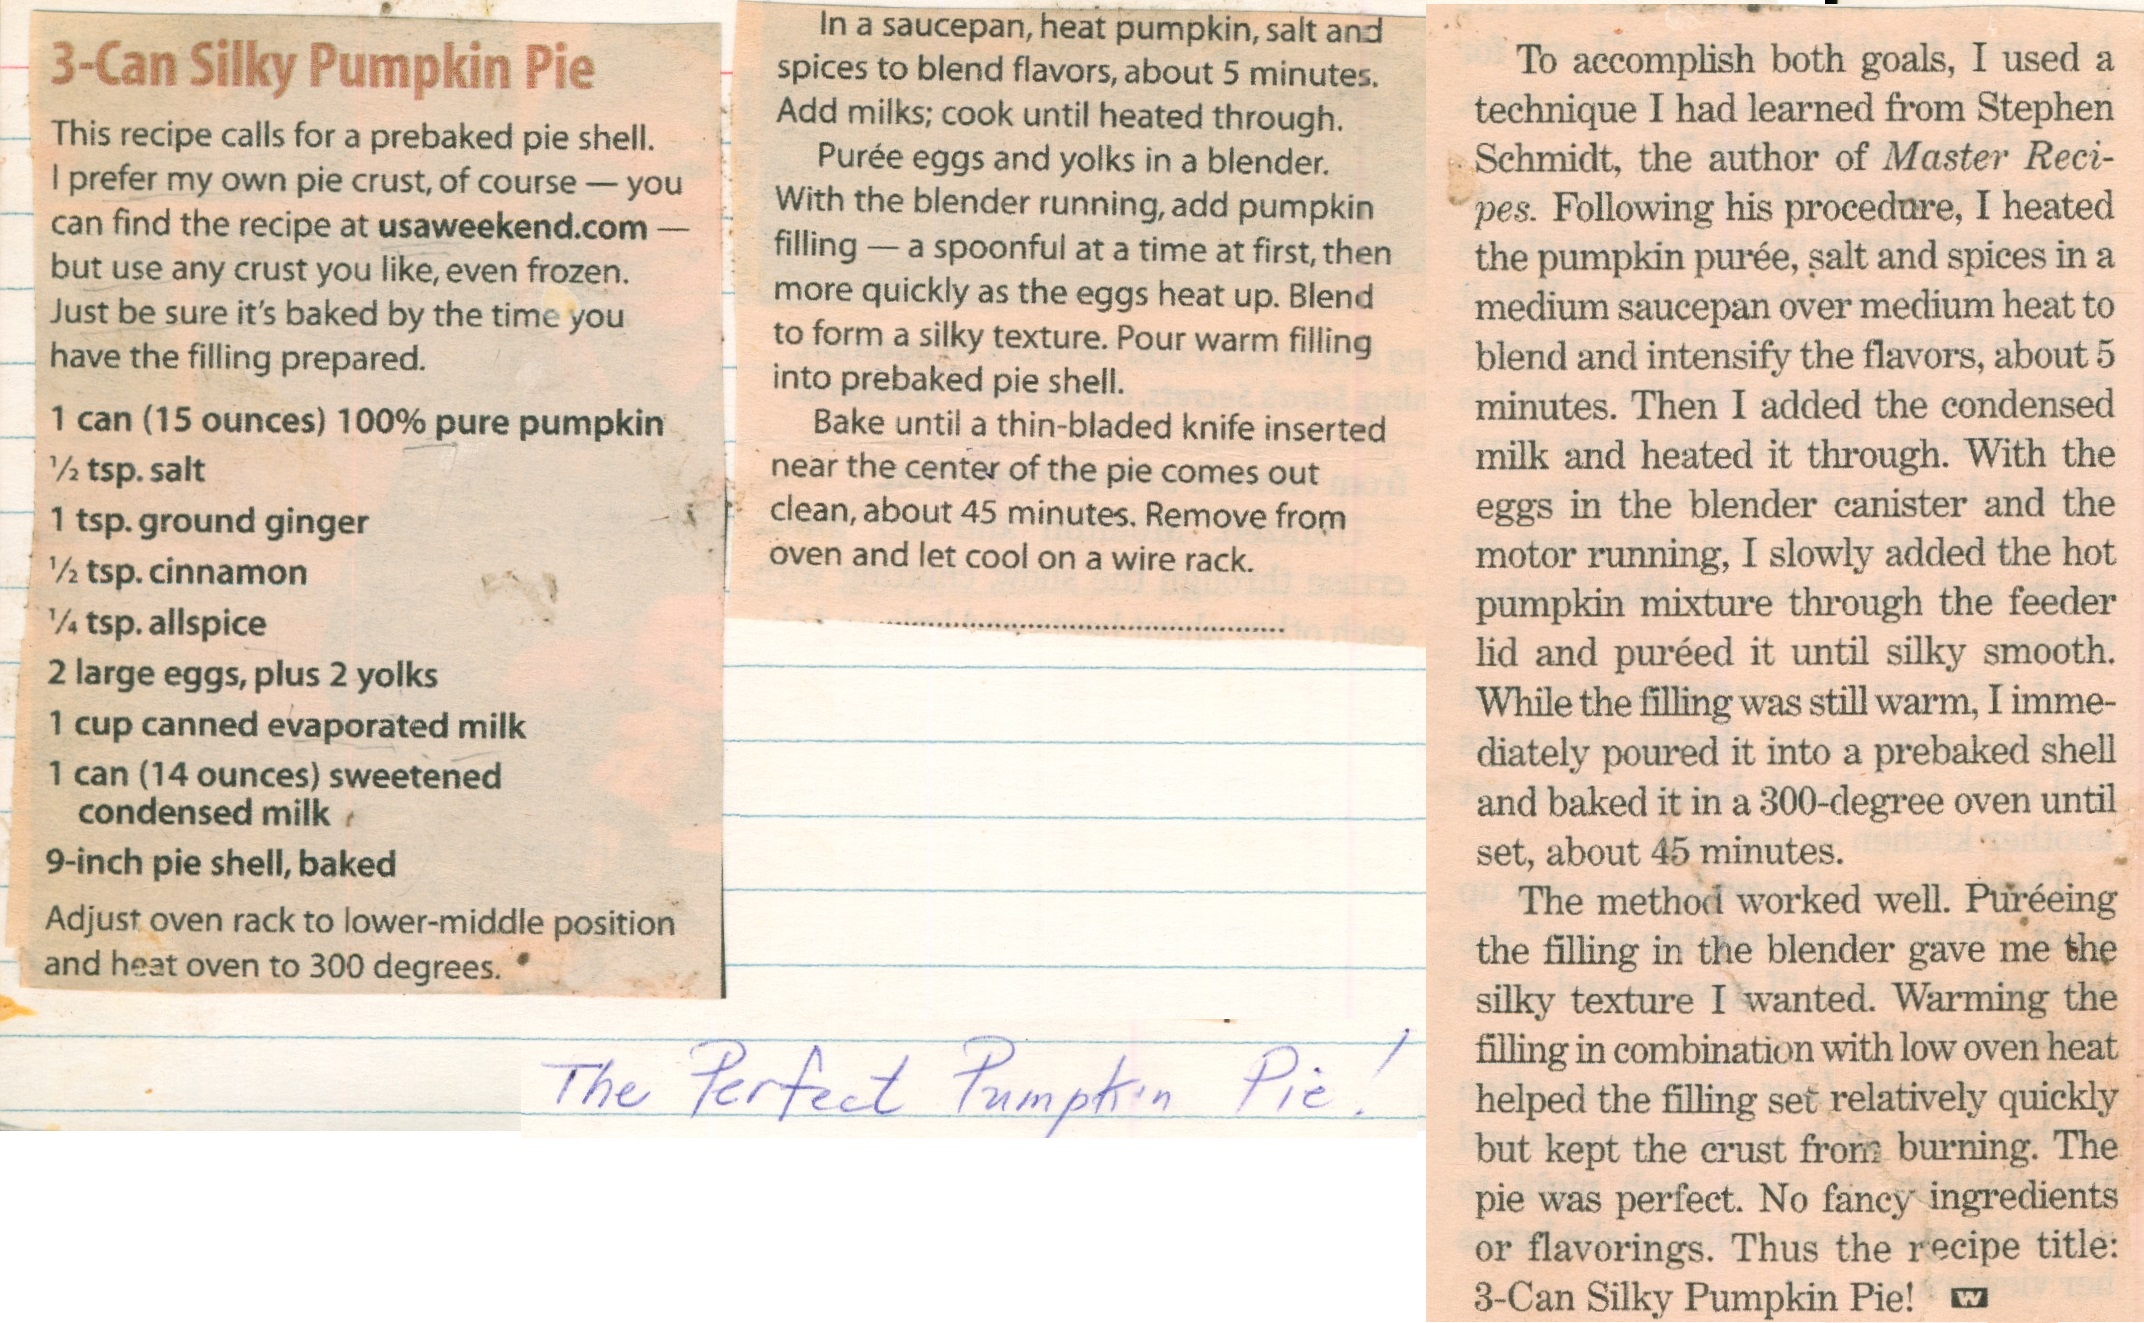 3-Can Silky Pumpkin Pie
This recipe calls for a prebaked pie shell.
I prefer my own pie crust, of course — you
can find the recipe at usaweekend.com —
but use any crust you like, even frozen.
Just be sure it's baked by the time you
have the filling prepared.
1 can (15 ounces) 100% pure pumpkin
½ tsp. salt
1 tsp. ground ginger
½ tsp. cinnamon
¼ tsp. allspice
2 large eggs, plus 2 yolks
1 cup canned evaporated milk
1 can (14 ounces) sweetened
condensed milk
9-inch pie shell, baked
Adjust oven rack to lower-middle position
and heat oven to 300 degrees.
In a saucepan, heat pumpkin, salt and
spices to blend flavors, about 5 minutes.
Add milks; cook until heated through.
Purée eggs and yolks in a blender.
With the blender running, add pumpkin
filling — a spoonful at a time at first, then
more quickly as the eggs heat up. Blend
to form a silky texture. Pour warm filling
into prebaked pie shell.
Bake until a thin-bladed knife inserted
near the center of the pie comes out
clean, about 45 minutes. Remove from
oven and let cool on a wire rack.
The Perfect Pumpkin Pie!
To accomplish both goals, I used a
technique I had learned from Stephen
Schmidt, the author of Master Reci-
pes. Following his procedure, I heated
the pumpkin purée, salt and spices in a
medium saucepan over medium heat to
blend and intensify the flavors, about 5
minutes. Then I added the condensed
milk and heated it through. With the
eggs in the blender canister and the
motor running, I slowly added the hot
pumpkin mixture through the feeder
lid and puréed it until silky smooth.
While the filling was still warm, I imme-
diately poured it into a prebaked shell
and baked it in a 300-degree oven until
set, about 45 minutes.
The method worked well. Puréeing
the filling in the blender gave me the
silky texture I wanted. Warming the
filling in combination with low oven heat
helped the filling set relatively quickly
but kept the crust from burning. The
pie was perfect. No fancy ingredients
or flavorings. Thus the recipe title:
3-Can Silky Pumpkin Pie! W